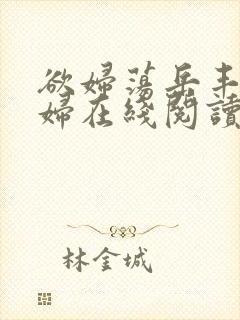 欲婦蕩岳丰
婦在綫閱讀
林金城